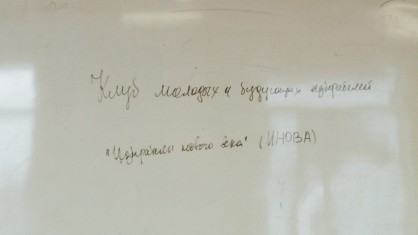 Клуб молодых и будущих избирателей
"Избиратели нового века" (ИНОВА)